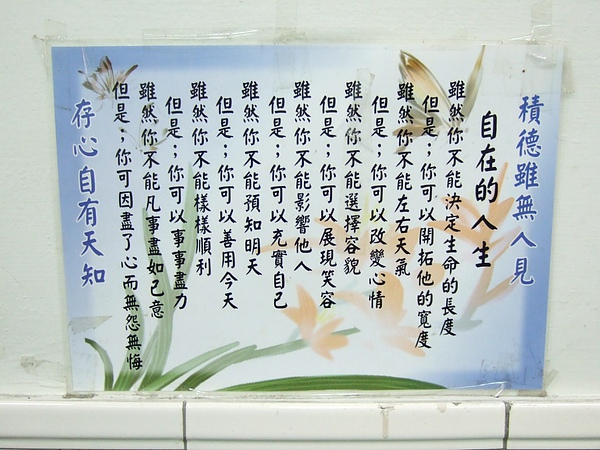 積德雖無人見
自在的人生
雖然你不能決定生命的長度
但是；你可以開拓他的寬度
雖然你不能左右天氣
但是；你可以改變心情
雖然你不能選擇容貌
但是；你可以展現笑容
雖然你不能影響他人
但是；你可以充實自己
雖然你不能預知明天
但是；你可以善用今天
雖然你不能樣樣順利
但是；你可以事事盡力
雖然你不能凡事盡如己意
但是；你可因盡了心而無怨無悔
存心自有天知